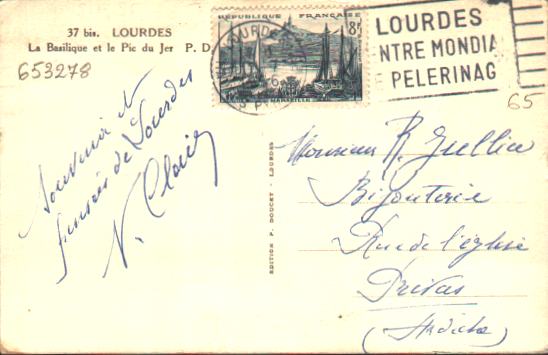 37 bis. LOURDES
La Basilique et le Pic du Jer P. D.
653278
Souvenir et
pensées de Lourdes
N. Clair
EDITION P. DOUCET - LOURDES
RÉPUBLIQUE FRANÇAISE
8F
LOURDES
NTRE MONDIA
PELERINAG
65
Monsieur R. Jullien
Bijouterie
Rue de l'église
Privas
(Ardèche)